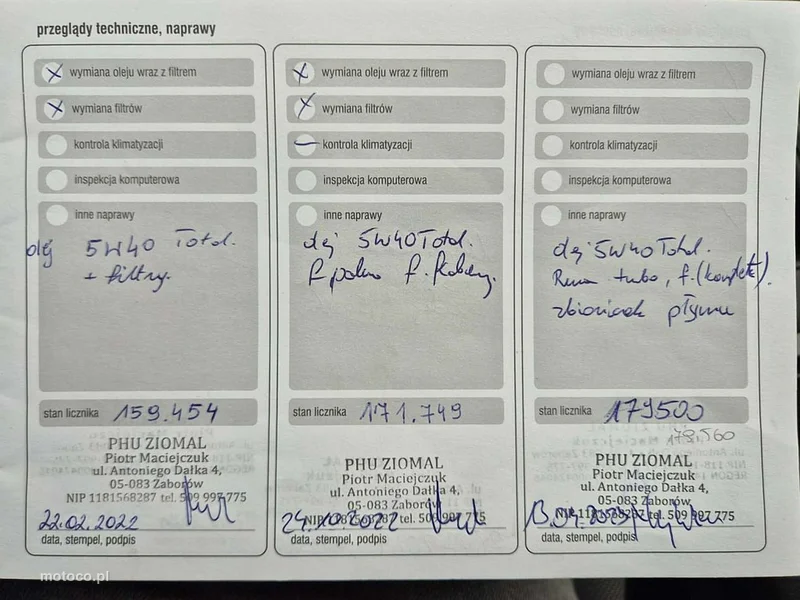 przeglądy techniczne, naprawy
wymiana oleju wraz z filtrem
wymiana filtrów
kontrola klimatyzacji
inspekcja komputerowa
inne naprawy
olej 5W40 Total.
+ filtry.
stan licznika 159.454
PHU ZIOMAL
Piotr Maciejczuk
ul. Antoniego Dałka 4,
05-083 Zaborów
NIP 1181568287 tel. 509 997 775
22.02.2022
data, stempel, podpis
wymiana oleju wraz z filtrem
wymiana filtrów
kontrola klimatyzacji
inspekcja komputerowa
inne naprawy
olej 5W40 Total.
f.
stan licznika 171.749
PHU ZIOMAL
Piotr Maciejczuk
ul. Antoniego Dałka 4,
05-083 Zaborów
NIP 1181568287 tel. 509 997 775
24.10.2022
data, stempel, podpis
wymiana oleju wraz z filtrem
wymiana filtrów
kontrola klimatyzacji
inspekcja komputerowa
inne naprawy
olej 5W40 Total.
turbo, f. (komplet).
zbiorniczek płynu
stan licznika 179500
178.560
PHU ZIOMAL
Piotr Maciejczuk
ul. Antoniego Dałka 4,
05-083 Zaborów
NIP 1181568287 tel. 509 997 775
data, stempel, podpis
motoco.pl